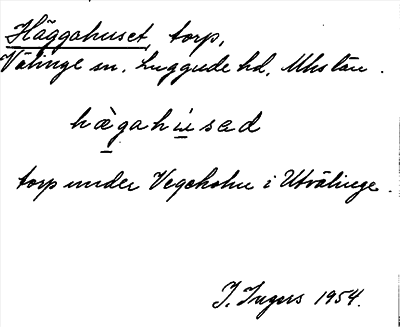 Häggahuset, torp,
Välinge sn. Luggude hd, Mhs län.
hægahùsad
torp under Vegeholm i Utvälinge.
I. Ingers 1954.